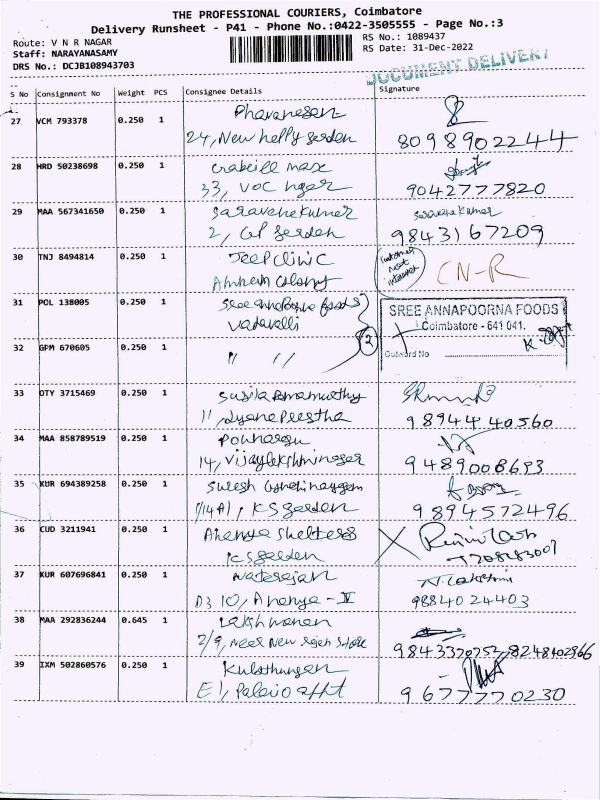 THE PROFESSIONAL COURIERS, Coimbatore
Delivery Runsheet - P41 - Phone No.:0422-3505555 - Page No.:3
Route: V N R NAGAR
Staff: NARAYANASAMY
DRS No.: DCJB108943703
RS No.: 1089437
RS Date: 31-Dec-2022
DOCUMENT DELIVERY
S No Consignment No Weight PCS Consignee Details Signature
27 VCM 793378 0.250 1
24, New
8098902244
28 HRD 50238698 0.250 1
33, VOC nger
9042777820
29 MAA 567341650 0.250 1 Saravanekumer
2,
9843167209
30 TNJ 8494814 0.250 1 Jeep Clinic
Colony
Customer not interest
CN-R
31 POL 138005 0.250 1 Sree Annapoorna foods
Vadavalli
SREE ANNAPOORNA FOODS
Coimbatore - 641 041.
Outward No
32 GPM 670605 0.250 1 " "
2
33 OTY 3715469 0.250 1 Susila
11,
98944 40560
34 MAA 858789519 0.250 1
14, Vijaylekshminager
9489008693
35 KUR 694389258 0.250 1 Suresh
KS garden
9894572496
36 CUD 3211941 0.250 1 Ananya Shelters
KS garden
37 KUR 607696841 0.250 1 Natesajan
D3 10, Ananya - IV
98840 24403
38 MAA 292836244 0.645 1 Lakshmanan
2/9, Near New Rajan Store
9843370752, 8248402966
39 IXM 502860576 0.250 1 Kulothungen
E1,
9677770230